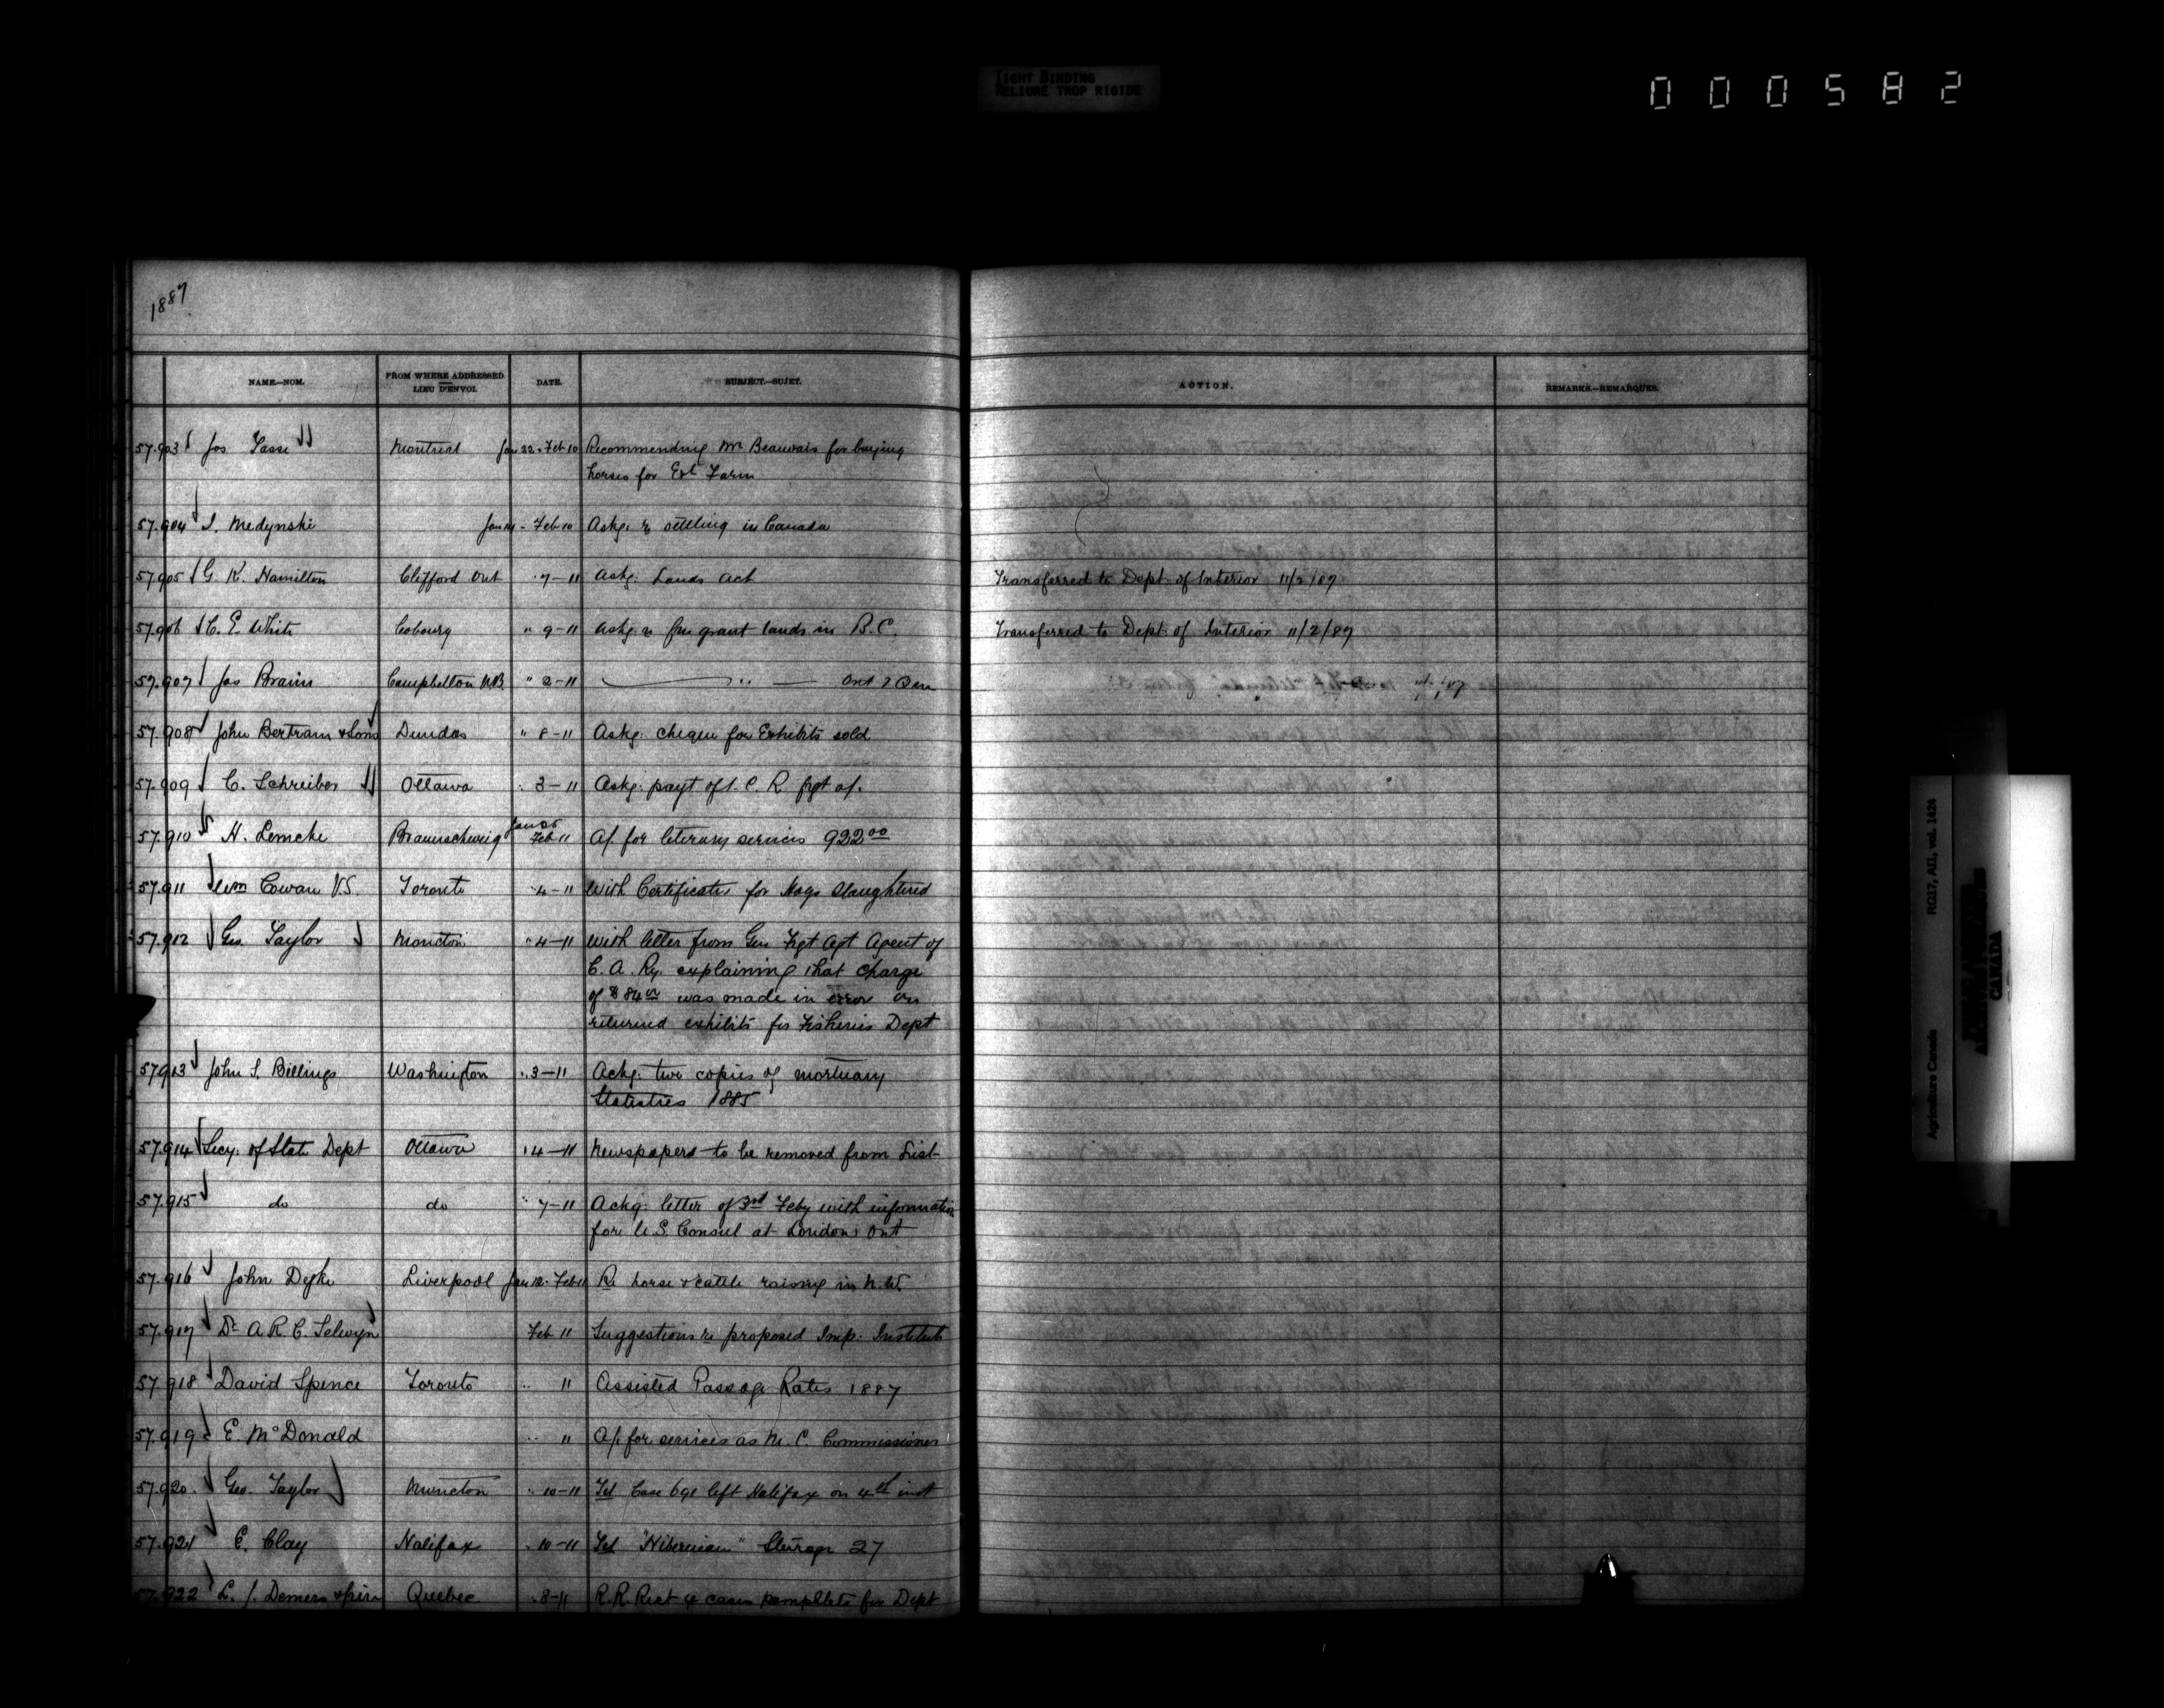 TIGHT BINDING
RELIURE TROP RIGIDE
000582
1887
NAME.—NOM. FROM WHERE ADDRESSED LIEU D'ENVOI. DATE. SUBJECT.—SUJET. ACTION. REMARKS.—REMARQUES.
57.903 Jos Tasse Montreal Jan 22 - Feb 10 Recommending Mr Beauvais for buying
horses for Exl Farm
57.904 Medynski Jan - Feb 10 Askg. re settling in Canada
57.905 G. K. Hamilton Clifford Ont 7-11 Askg. Lands Act Transferred to Dept of Interior 11/2/87
57.906 C. E. White Cobourg " 9-11 Askg. re free grant lands in B.C. Transferred to Dept. of Interior 11/2/87
57.907 Jas Brain Campbellton N.B. " 2-11 — " — Ont
57.908 John Bertram & Sons Dundas " 8-11 Askg. cheque for Exhibits sold
57.909 C. Schreiber Ottawa " 3-11 Askg. payt of I. C. R. frgt a/.
57.910 H. Lemcke Braunschweig Jan 25 Feb 11 A/. for literary services 922 00
57.911 Wm Cowan V.S. Toronto " 4-11 With Certificates for Hogs slaughtered
57.912 Geo. Taylor Moncton " 4-11 With letter from Gen Frgt Agt Agent of
C. A. Ry. explaining that charge
of $84 was made in error on
returned exhibits for Fisheries Dept
57.913 John S. Billings Washington " 3-11 Ackg. two copies of mortuary
Statistics 1885
57.914 Secy. of State Dept Ottawa " 4-11 Newspapers to be removed from List
57.915 do do " 7-11 Ackg. letter of 3rd Feby with information
for U.S. Consul at London Ont
57.916 John Dyke Liverpool Jan 12 - Feb 11 Re horse & cattle raising in N.W.
57.917 Dr A. R. C. Selwyn Feb 11 Suggestions re proposed Imp. Institute
57.918 David Spence Toronto " 11 Assisted Passage Rates 1887
57.919 E. McDonald " 11 A/. for services as M. C. Commissioner
57.920. Geo. Taylor Moncton " 10-11 Tel Case 691 left Halifax on 4th inst
57.921 E. Clay Halifax " 10-11 Tel "Hibernian" Steerage 27
57.922 L. J. Demers & frère Quebec " 8-11 R.R. Rect 4 cases pamphlets for Dept
Agriculture Canada RG17, AII, vol. 1424
CANADA